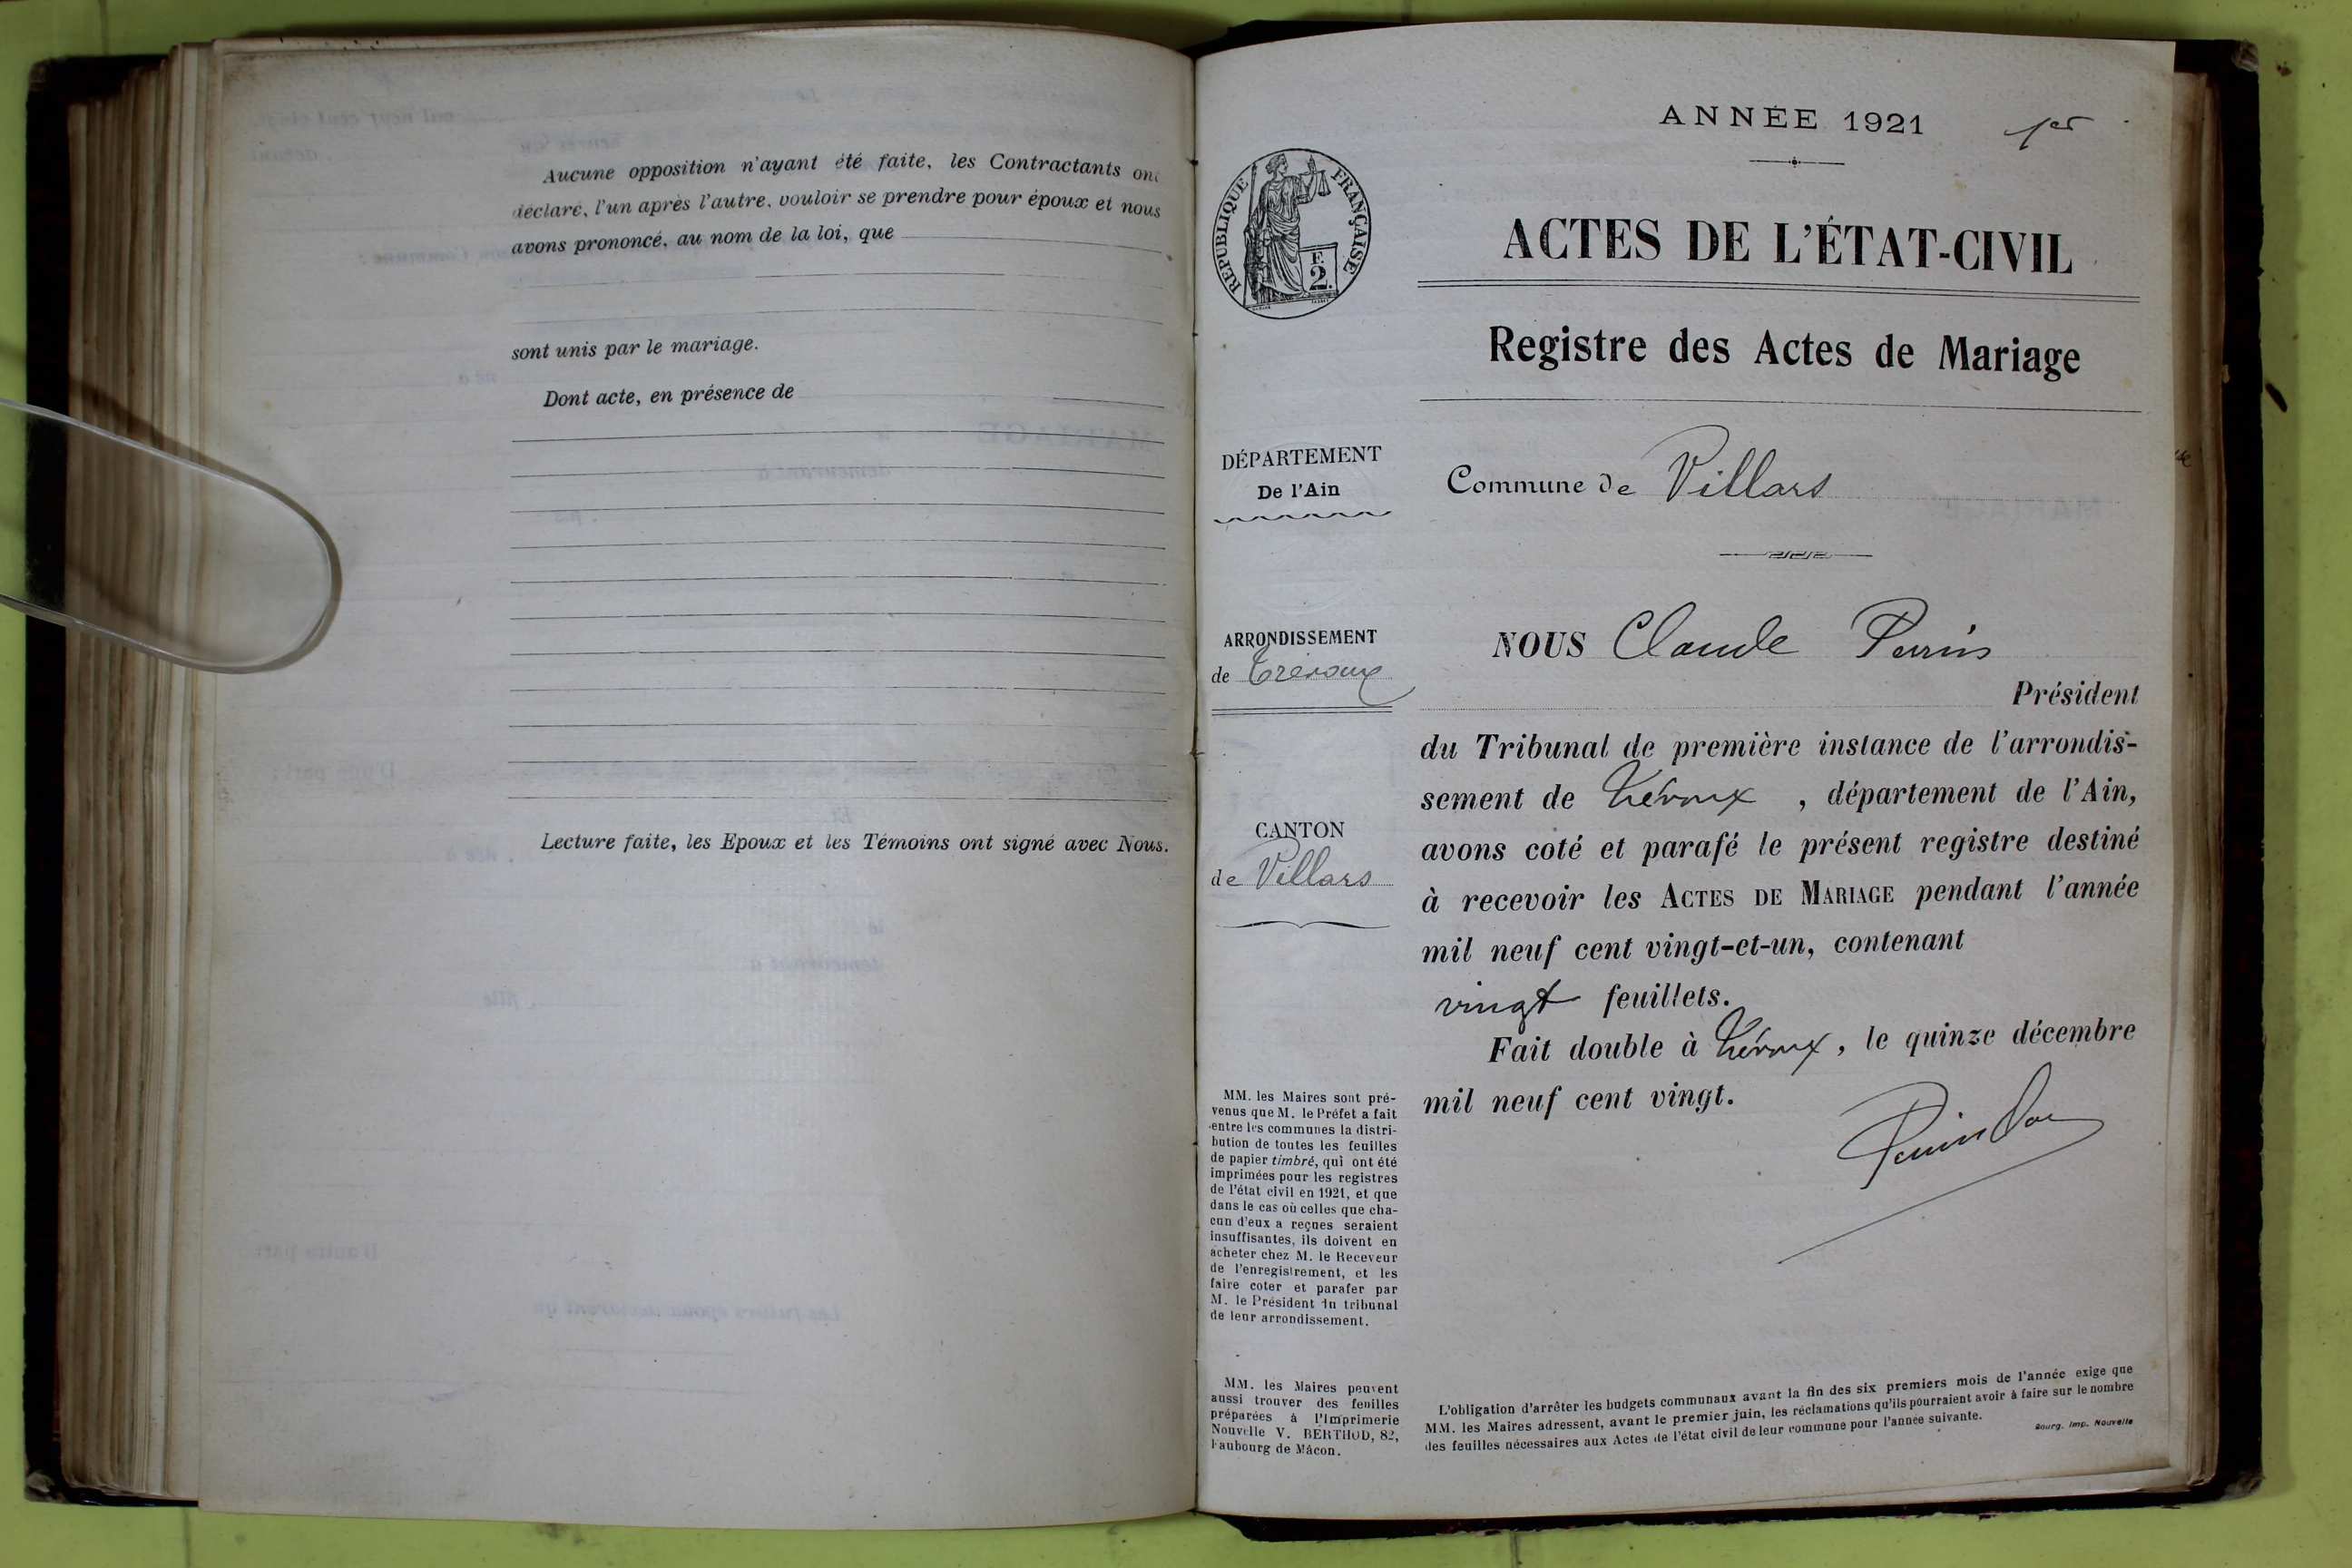 Aucune opposition n'ayant été faite, les Contractants ont
déclaré, l'un après l'autre, vouloir se prendre pour époux et nous
avons prononcé, au nom de la loi, que
sont unis par le mariage.
Dont acte, en présence de
Lecture faite, les Epoux et les Témoins ont signé avec Nous.
ANNÉE 1921
1er
RÉPUBLIQUE FRANÇAISE
2
F.
ACTES DE L'ÉTAT-CIVIL
Registre des Actes de Mariage
DÉPARTEMENT
De l'Ain
Commune de Villars
ARRONDISSEMENT
de Trévoux
CANTON
de Villars
MM. les Maires sont pré-
venus que M. le Préfet a fait
entre les communes la distri-
bution de toutes les feuilles
de papier timbré, qui ont été
imprimées pour les registres
de l'état civil en 1921, et que
dans le cas où celles que cha-
cun d'eux a reçues seraient
insuffisantes, ils doivent en
acheter chez M. le Receveur
de l'enregistrement, et les
faire coter et parafer par
M. le Président du tribunal
de leur arrondissement.
MM. les Maires peuvent
aussi trouver des feuilles
préparées à l'Imprimerie
Nouvelle V. BERTHOD, 82,
Faubourg de Mâcon.
NOUS Claude Perrin
Président
du Tribunal de première instance de l'arrondis-
sement de Trévoux, département de l'Ain,
avons coté et parafé le présent registre destiné
à recevoir les ACTES DE MARIAGE pendant l'année
mil neuf cent vingt-et-un, contenant
vingt feuillets.
Fait double à Trévoux, le quinze décembre
mil neuf cent vingt.
L'obligation d'arrêter les budgets communaux avant la fin des six premiers mois de l'année exige que
MM. les Maires adressent, avant le premier juin, les réclamations qu'ils pourraient avoir à faire sur le nombre
des feuilles nécessaires aux Actes de l'état civil de leur commune pour l'année suivante.
Bourg. Imp. Nouvelle